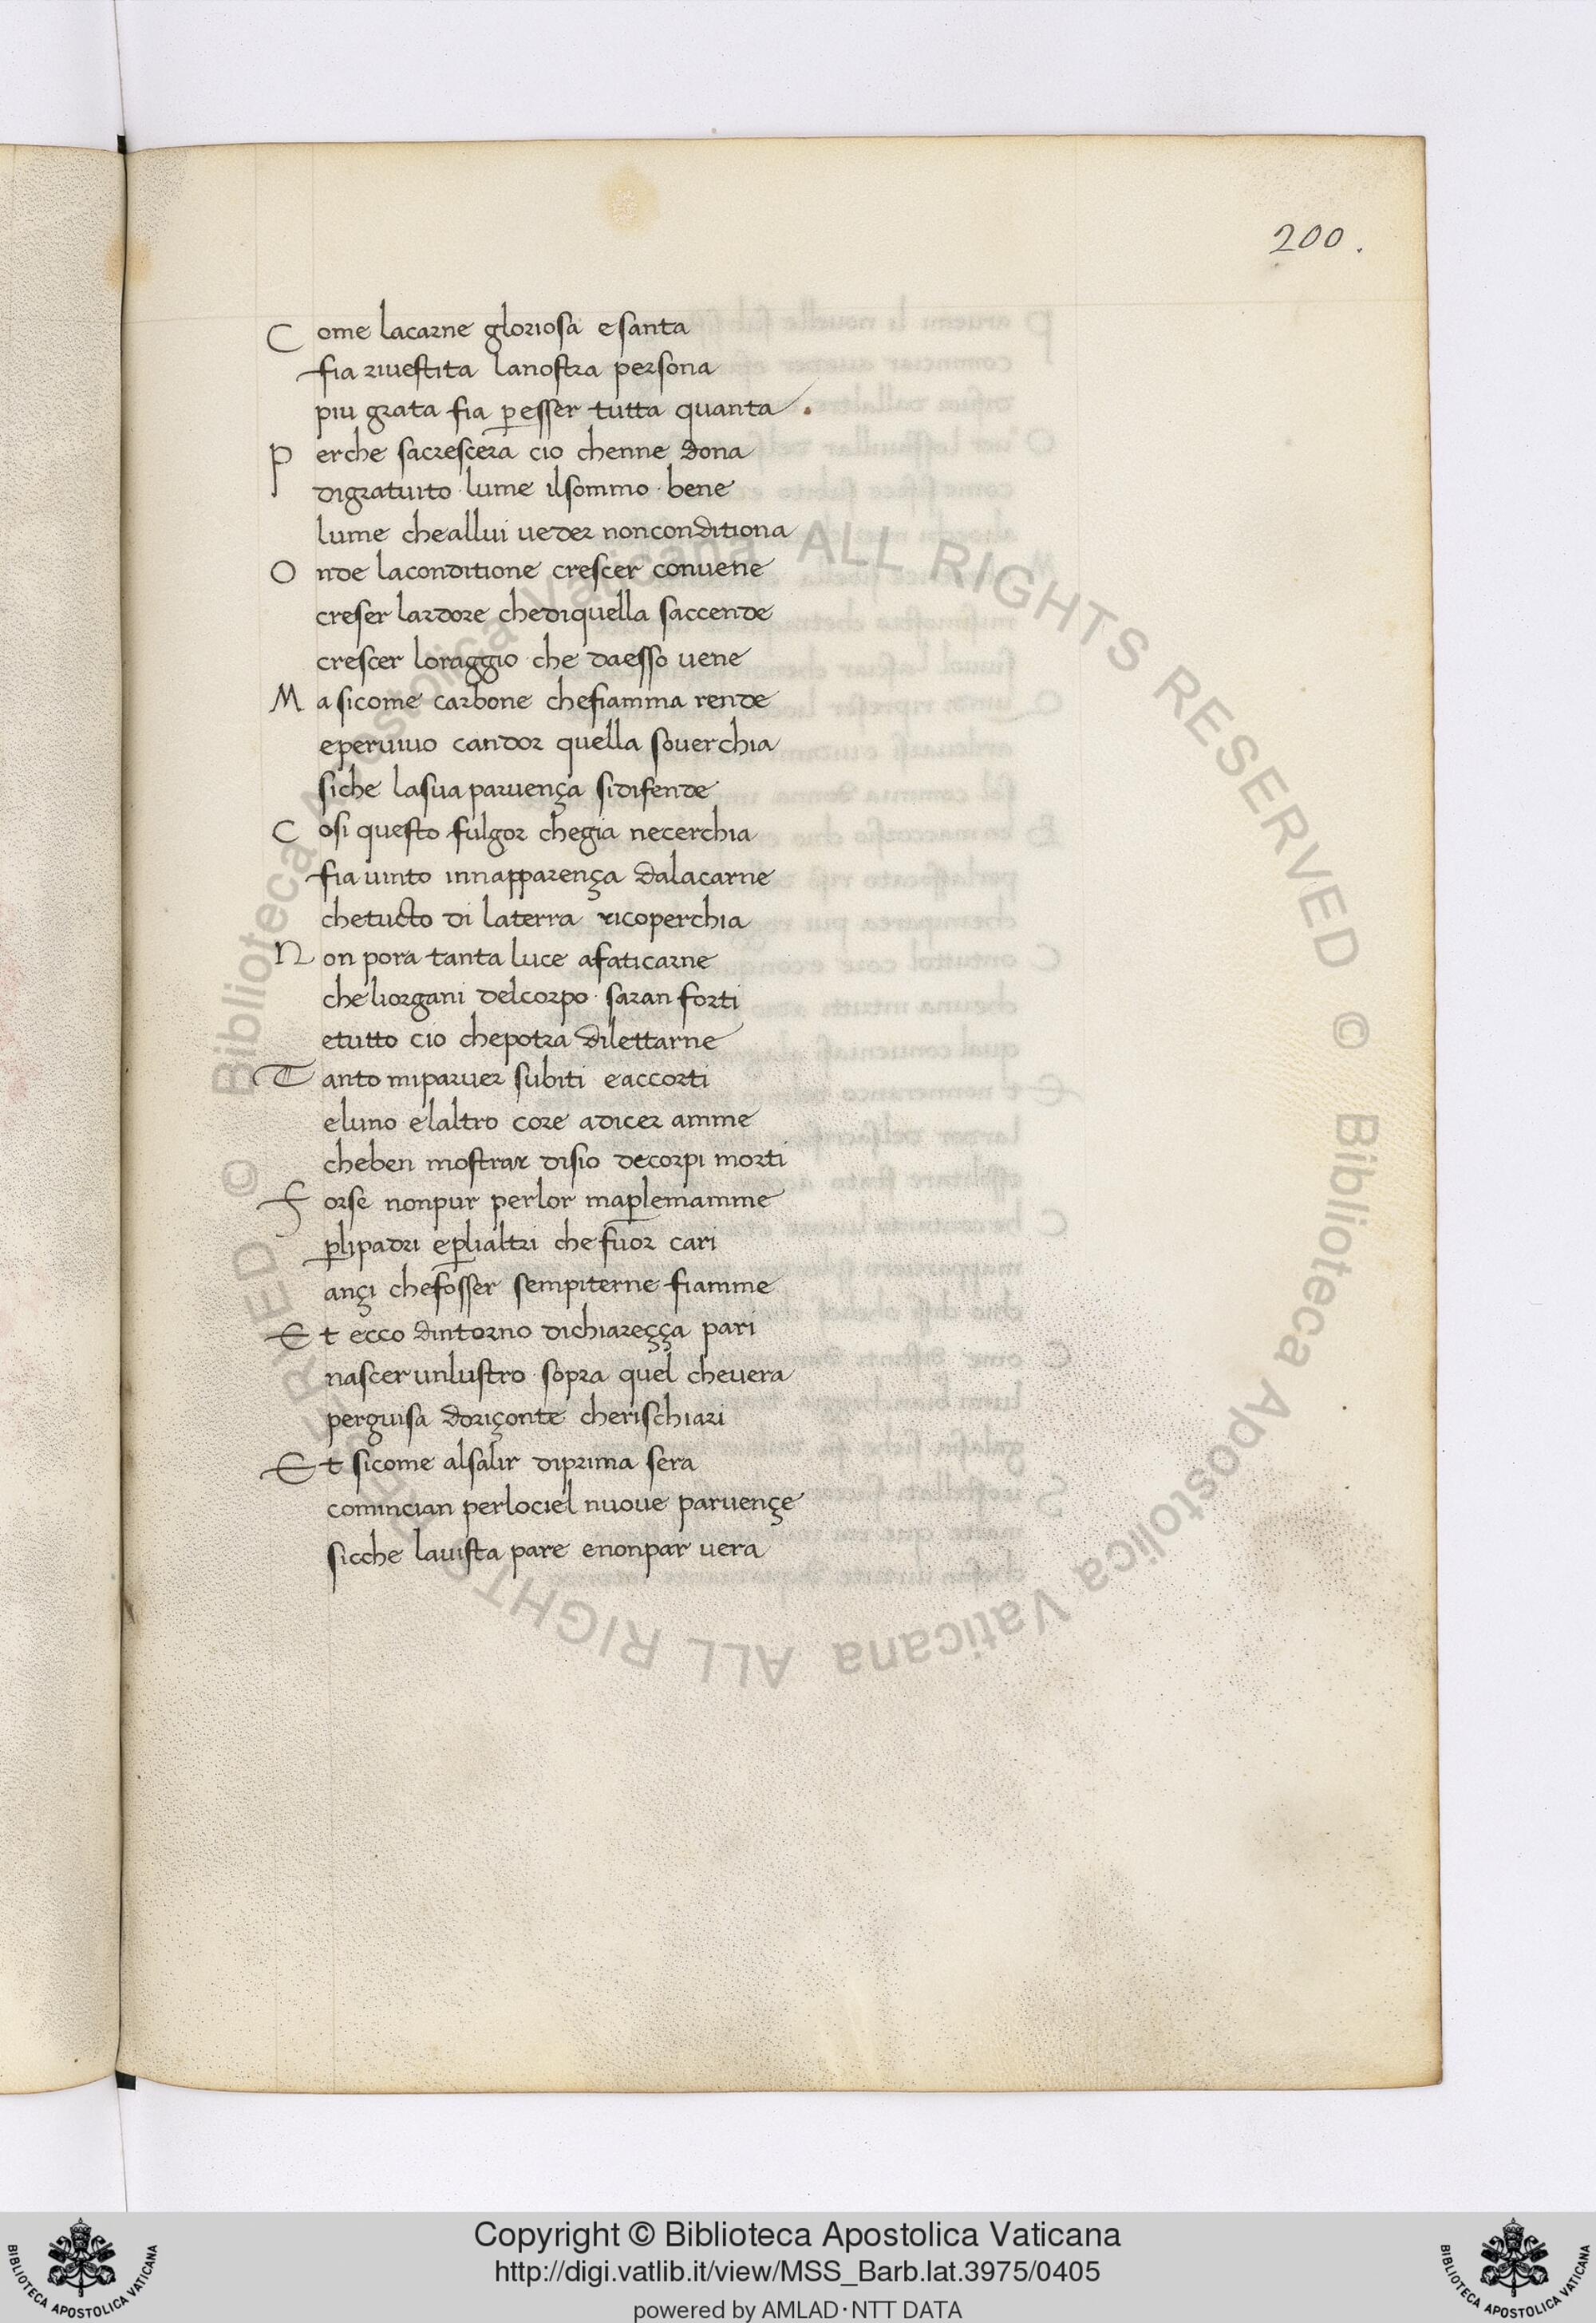 200.
Come lacarne gloriosa esanta
fia riuestita lanostra persona
piu grata fia ꝑesser tutta quanta.
Perche sacrescera cio chenne dona
digratuito·lume ilsommo·bene
lume cheallui ueder nonconditiona
Onde laconditione crescer conuene
creser lardore chediquella saccende
crescer loraggio·che daesso uene
Ma sicome carbone chefiamma rende
eperuiuo candor quella souerchia
siche lasua paruença sidifende
Cosi questo fulgor chegia necerchia
fia uinto innapparença dalacarne
chetucto di laterra ricoperchia
Non pora tanta luce afaticarne
che liorgani delcorpo·saran forti
etutto cio chepotra dilettarne
Tanto miparuer subiti eaccorti
eluno elaltro core adicer amme
cheben mostrar disio decorpi morti
Forse nonpur perlor maꝑlemamme
ꝑlipadri eꝑlialtri che fuor cari
ançi chefosser sempiterne fiamme
Et ecco dintorno dichiareçça pari
nascer unlustro·sopra quel cheuera
perguisa doriçonte cherischiari
Et sicome alsalir diprima sera
comincian perlociel nuoue paruençe
sicche lauista pare enonpar uera
© Biblioteca Apostolica Vaticana ALL RIGHTS RESERVED © Biblioteca Apostolica Vaticana ALL RIGHTS RESERVED
BIBLIOTECA APOSTOLICA VATICANA
Copyright © Biblioteca Apostolica Vaticana
http://digi.vatlib.it/view/MSS_Barb.lat.3975/0405
powered by AMLAD·NTT DATA
BIBLIOTECA APOSTOLICA VATICANA